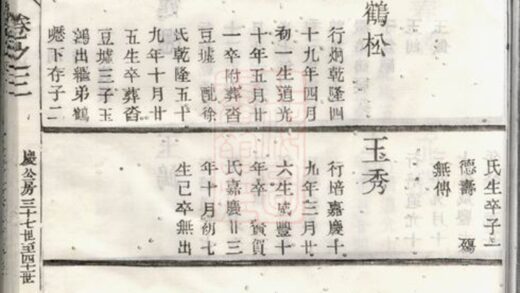 鶴松
行炯乾隆四
十九年四月
初一生道光
十年五月廿
一卒附葬沓
豆墟 配徐
氏乾隆五十
九年十月廿
五生卒葬沓
豆墟三子玉
鴻出繼弟鶴
下存子二
氏生卒子一
德壽 殤
無傳
玉秀
行培嘉慶十
九年三月廿
六生咸豐十
年卒 賀
氏嘉慶廿三
年十月初七
生已卒無出
慶公房三十七世至四十世